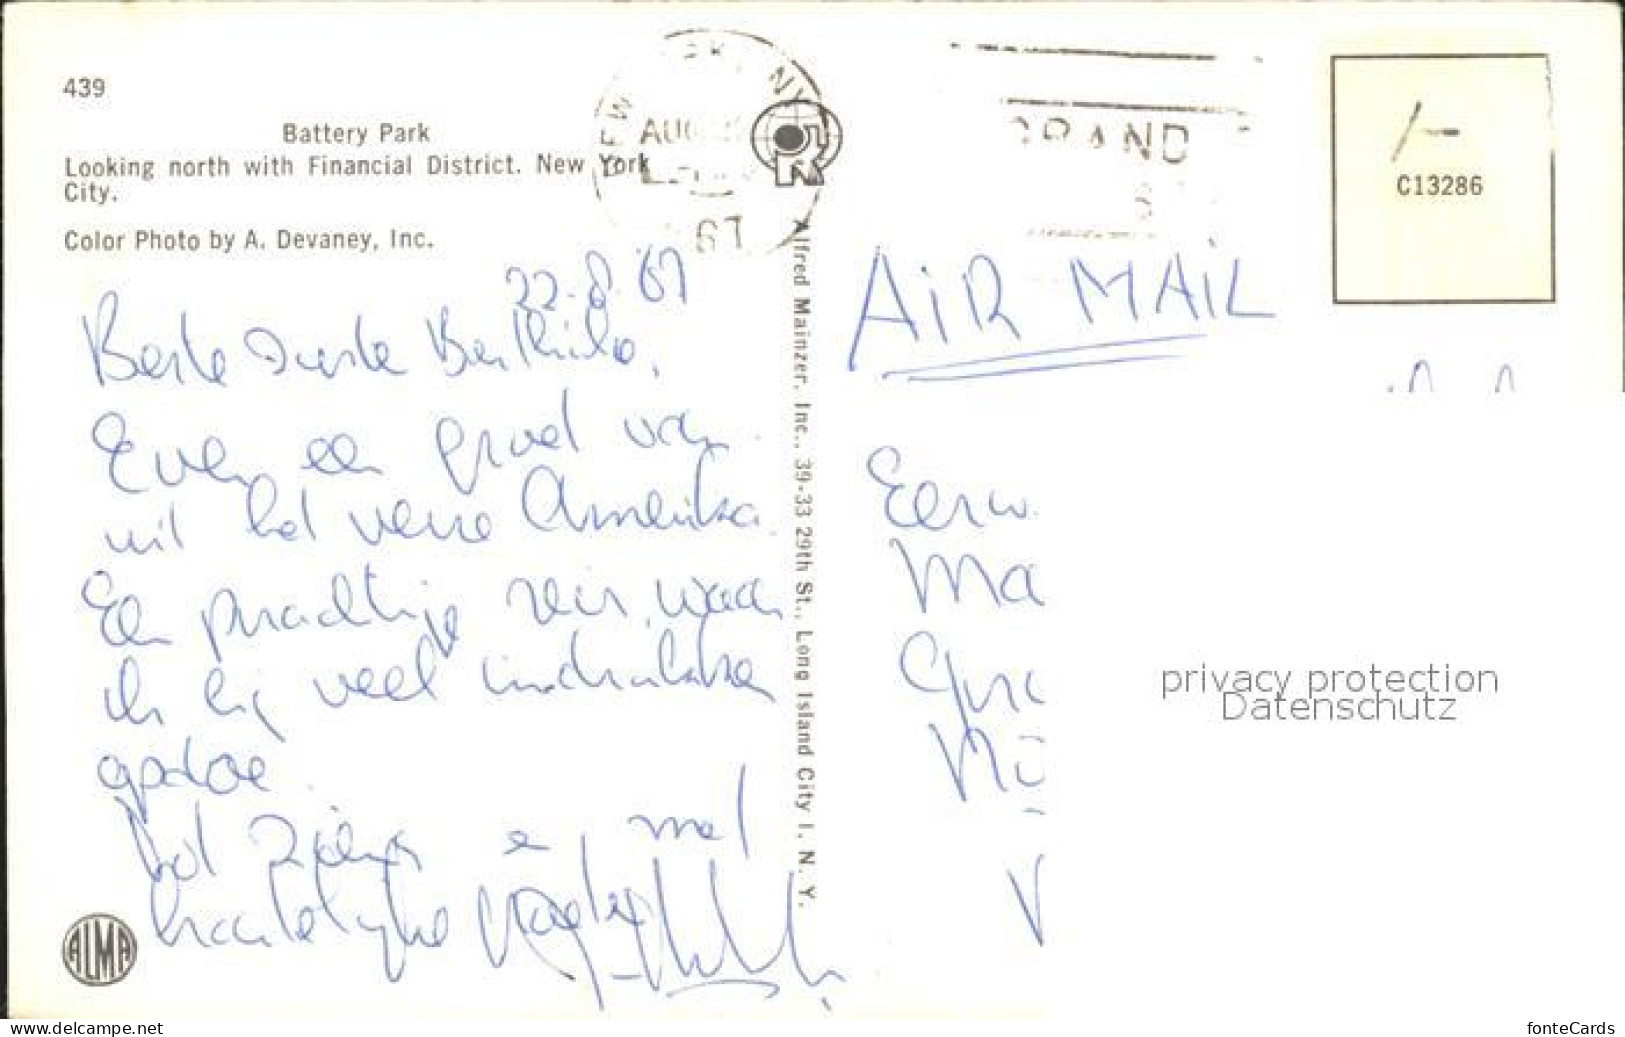 439
Battery Park
Looking north with Financial District. New York
City.
Color Photo by A. Devaney, Inc.
AUG
67
GRAND
C13286
AIR MAIL
22-8-'67
Beste Zuster Berthilo,
Even een groet van
uit het verre Amerika.
Een prachtige reis, waar
ik erg veel indrukken
opdoe.
Tot ziens en met
hartelijke
Alfred Mainzer, Inc., 39-33 29th St., Long Island City 1, N. Y.
ALMA
Eerw.
Ma
privacy protection
Datenschutz
www.delcampe.net
fonteCards